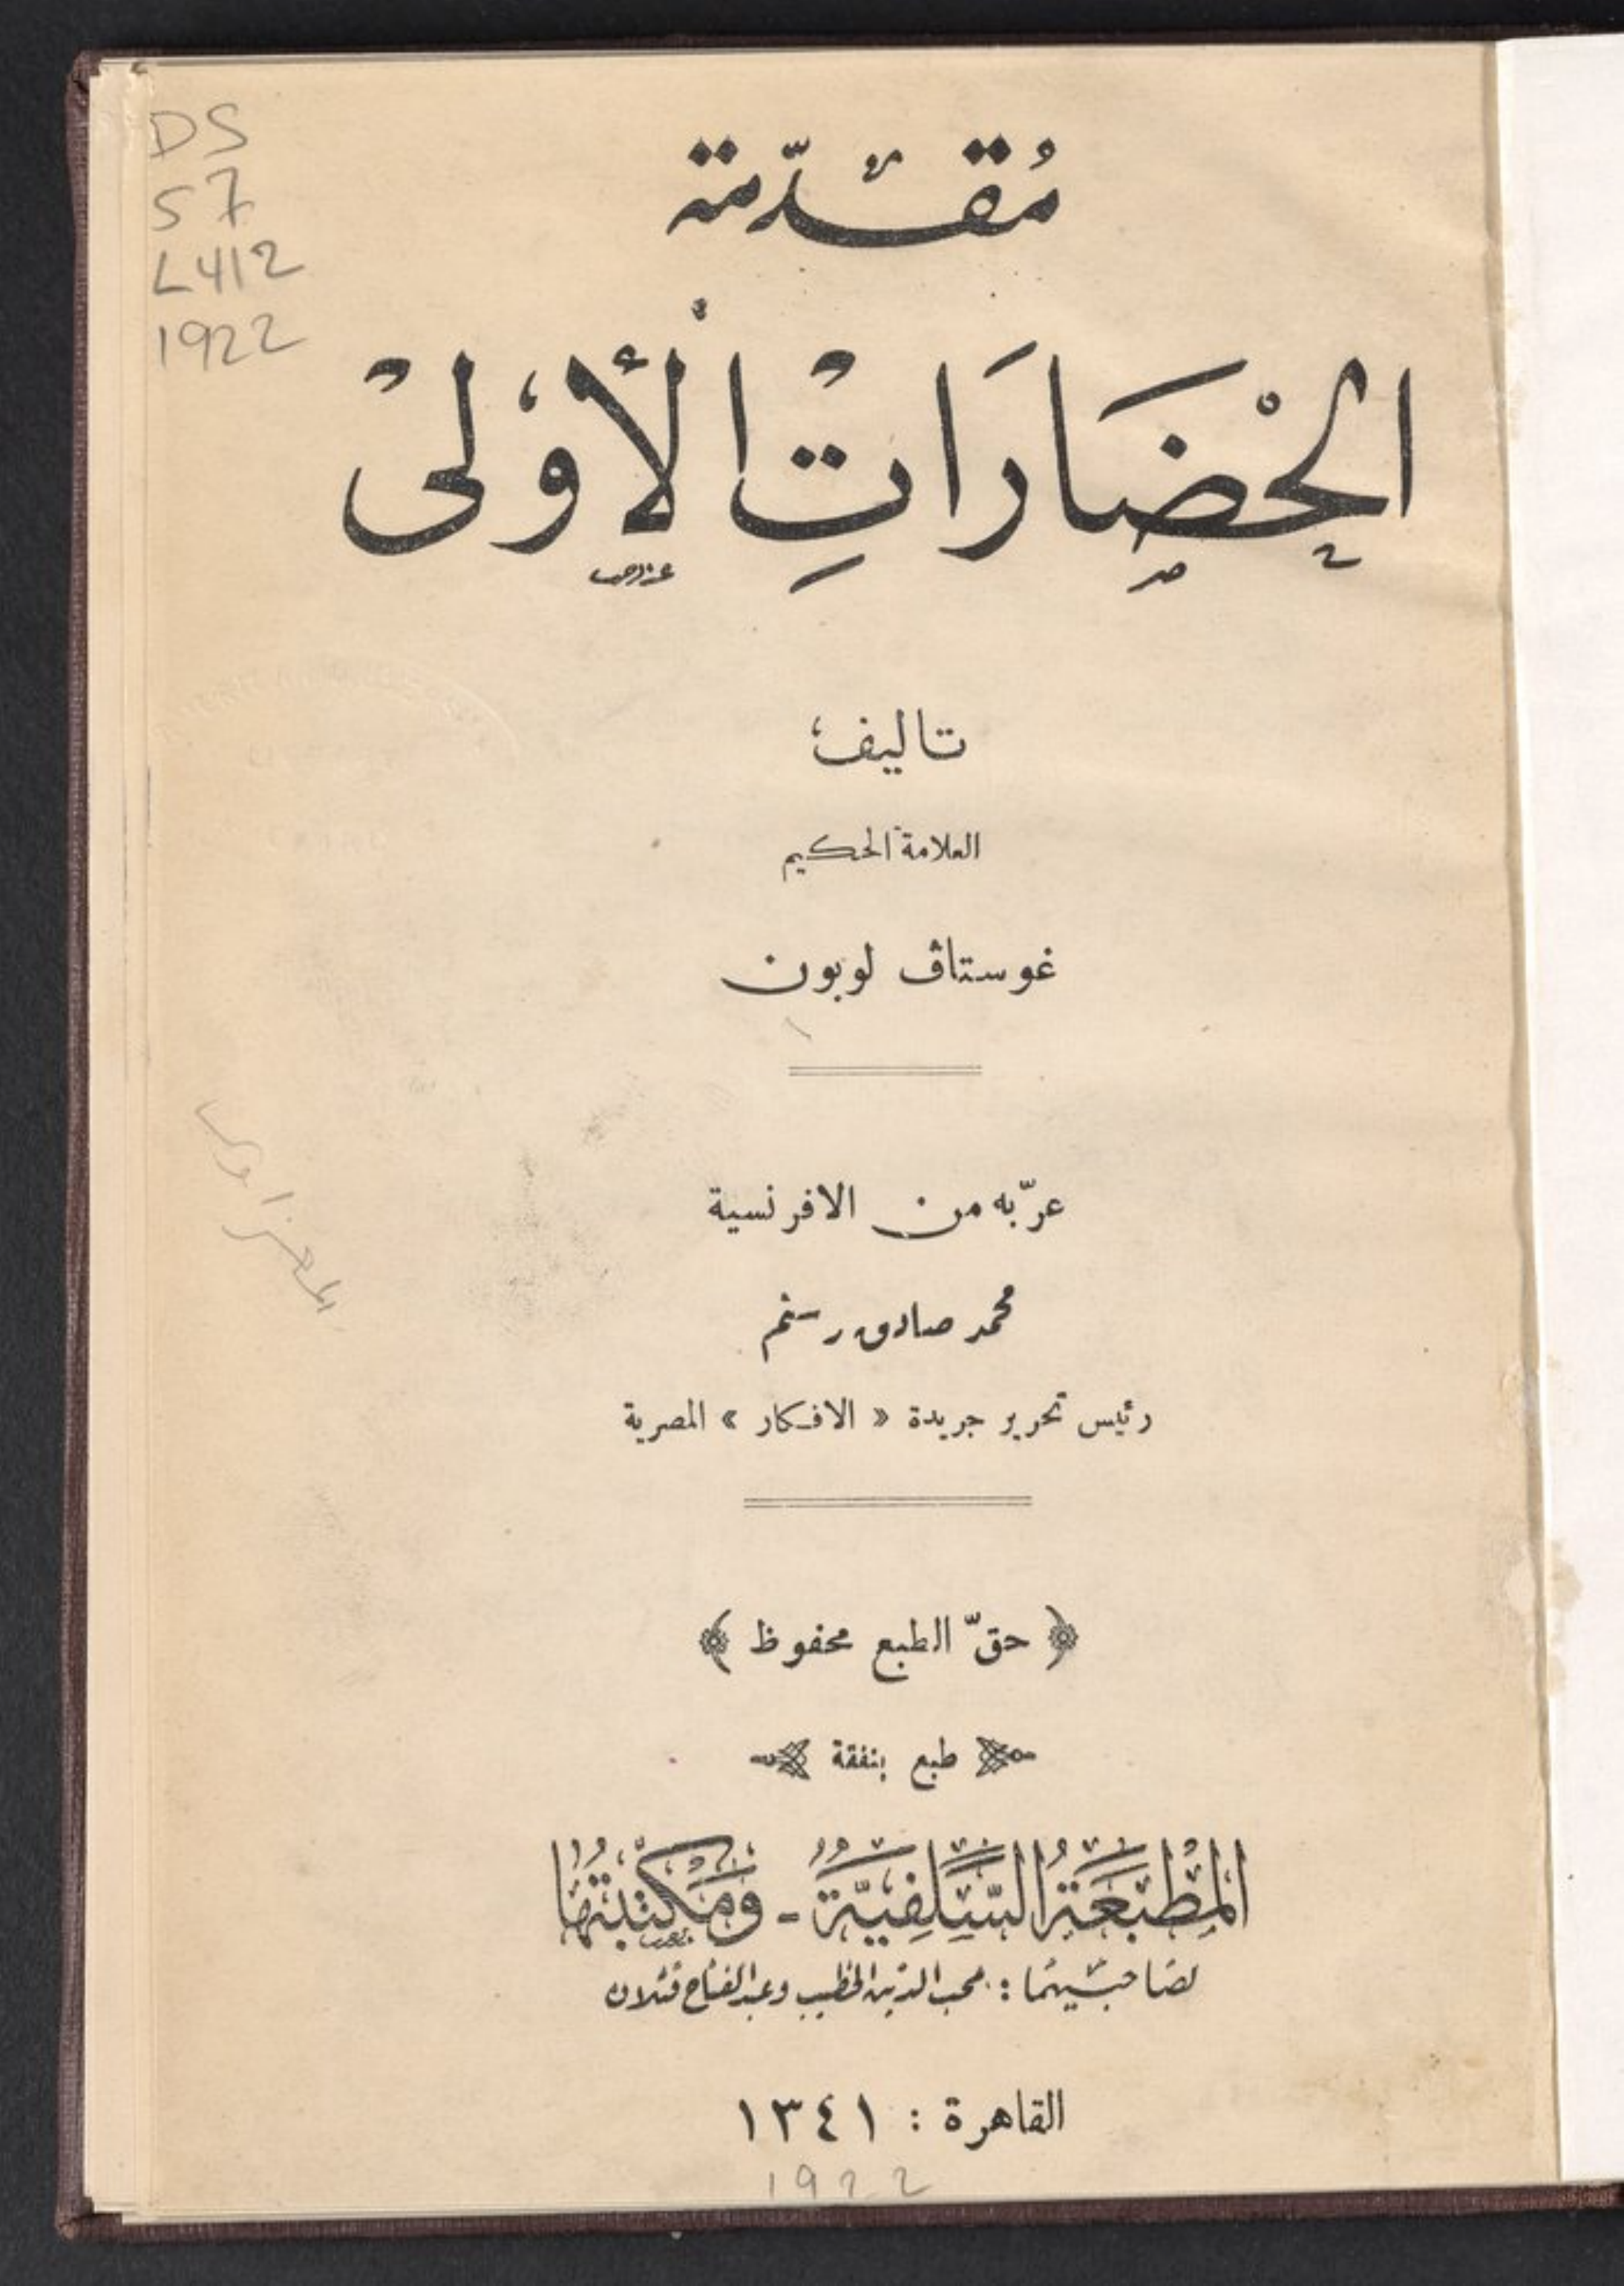 DS
57
L412
1922
مُقدّمة
الحْضَارَاتِ الأولى
تاليف
العلامة الحكيم
غوستاڤ لوبون
عرّبه من الافرنسية
محمد صادق رستم
رئيس تحرير جريدة « الافكار » المصرية
﴿ حقّ الطبع محفوظ ﴾
طبع بنفقة
المَطْبَعَةُ السَّلَفِيَّةُ - وَمَكْتَبَتُهَا
لصَاحبَيْهمَا : محب الدين الخطيب وعبد الفتاح قتلان
القاهرة : ١٣٤١
1922